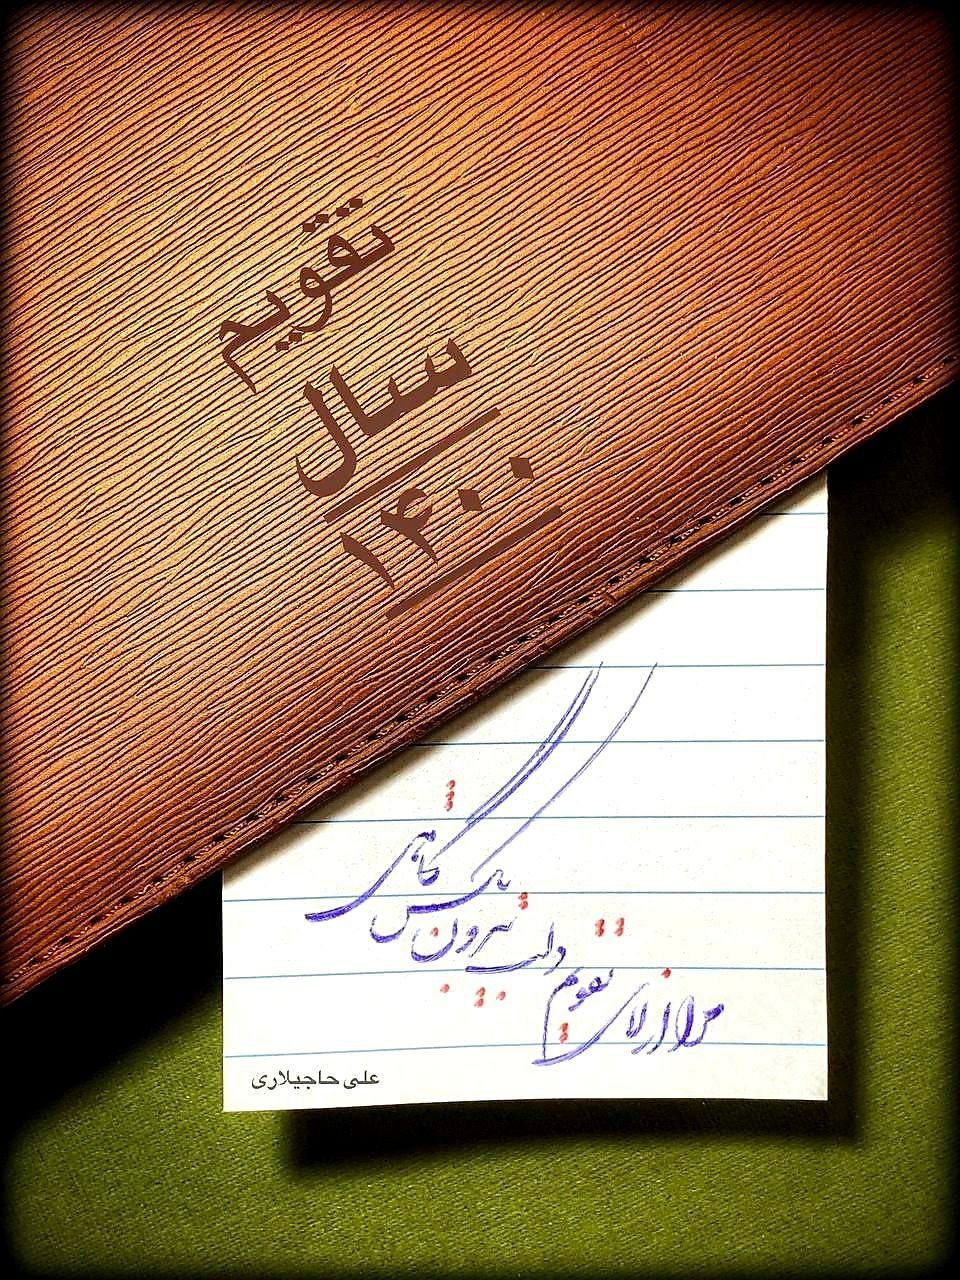 تقویم
سال
۱۴۰۰
مرا از لای تقویم دلت بیرون بکش گاهی
علی حاجیلاری